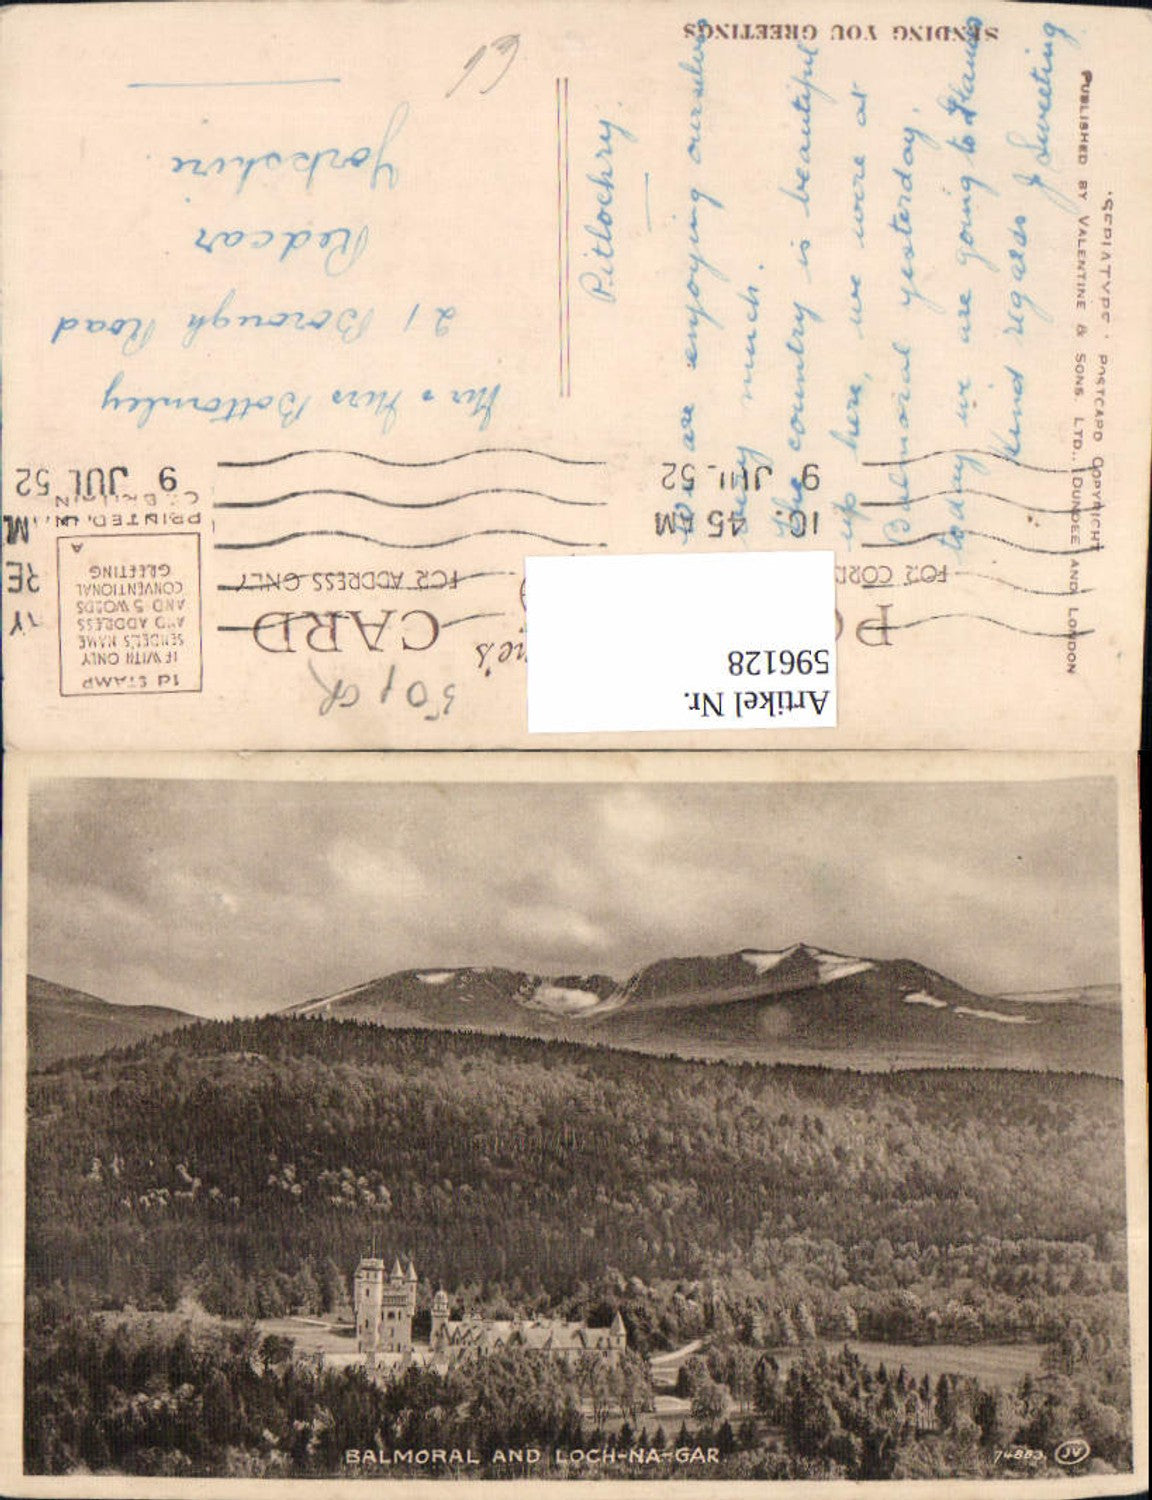 SENDING YOU GREETINGS
Pitlochry.
We are enjoying ourselves
very much.
The country is beautiful
up here, we were at
Balmoral yesterday.
today we are going to
Kind regards J Sweeting
PUBLISHED BY VALENTINE & SONS, LTD., DUNDEE AND LONDON
POSTCARD COPYRIGHT
Mr & Mrs Bottomley
21 Borough Road
Redcar
Yorkshire
9 JUL 52
10. 45 PM
9 JUL 52
PRINTED IN
FOR ADDRESS ONLY
CARD
1d STAMP
IF WITH ONLY
SENDER'S NAME
AND ADDRESS
AND 5 WORDS
CONVENTIONAL
GREETING
A
Artikel Nr.
596128
BALMORAL AND LOCH-NA-GAR.
74883. JV